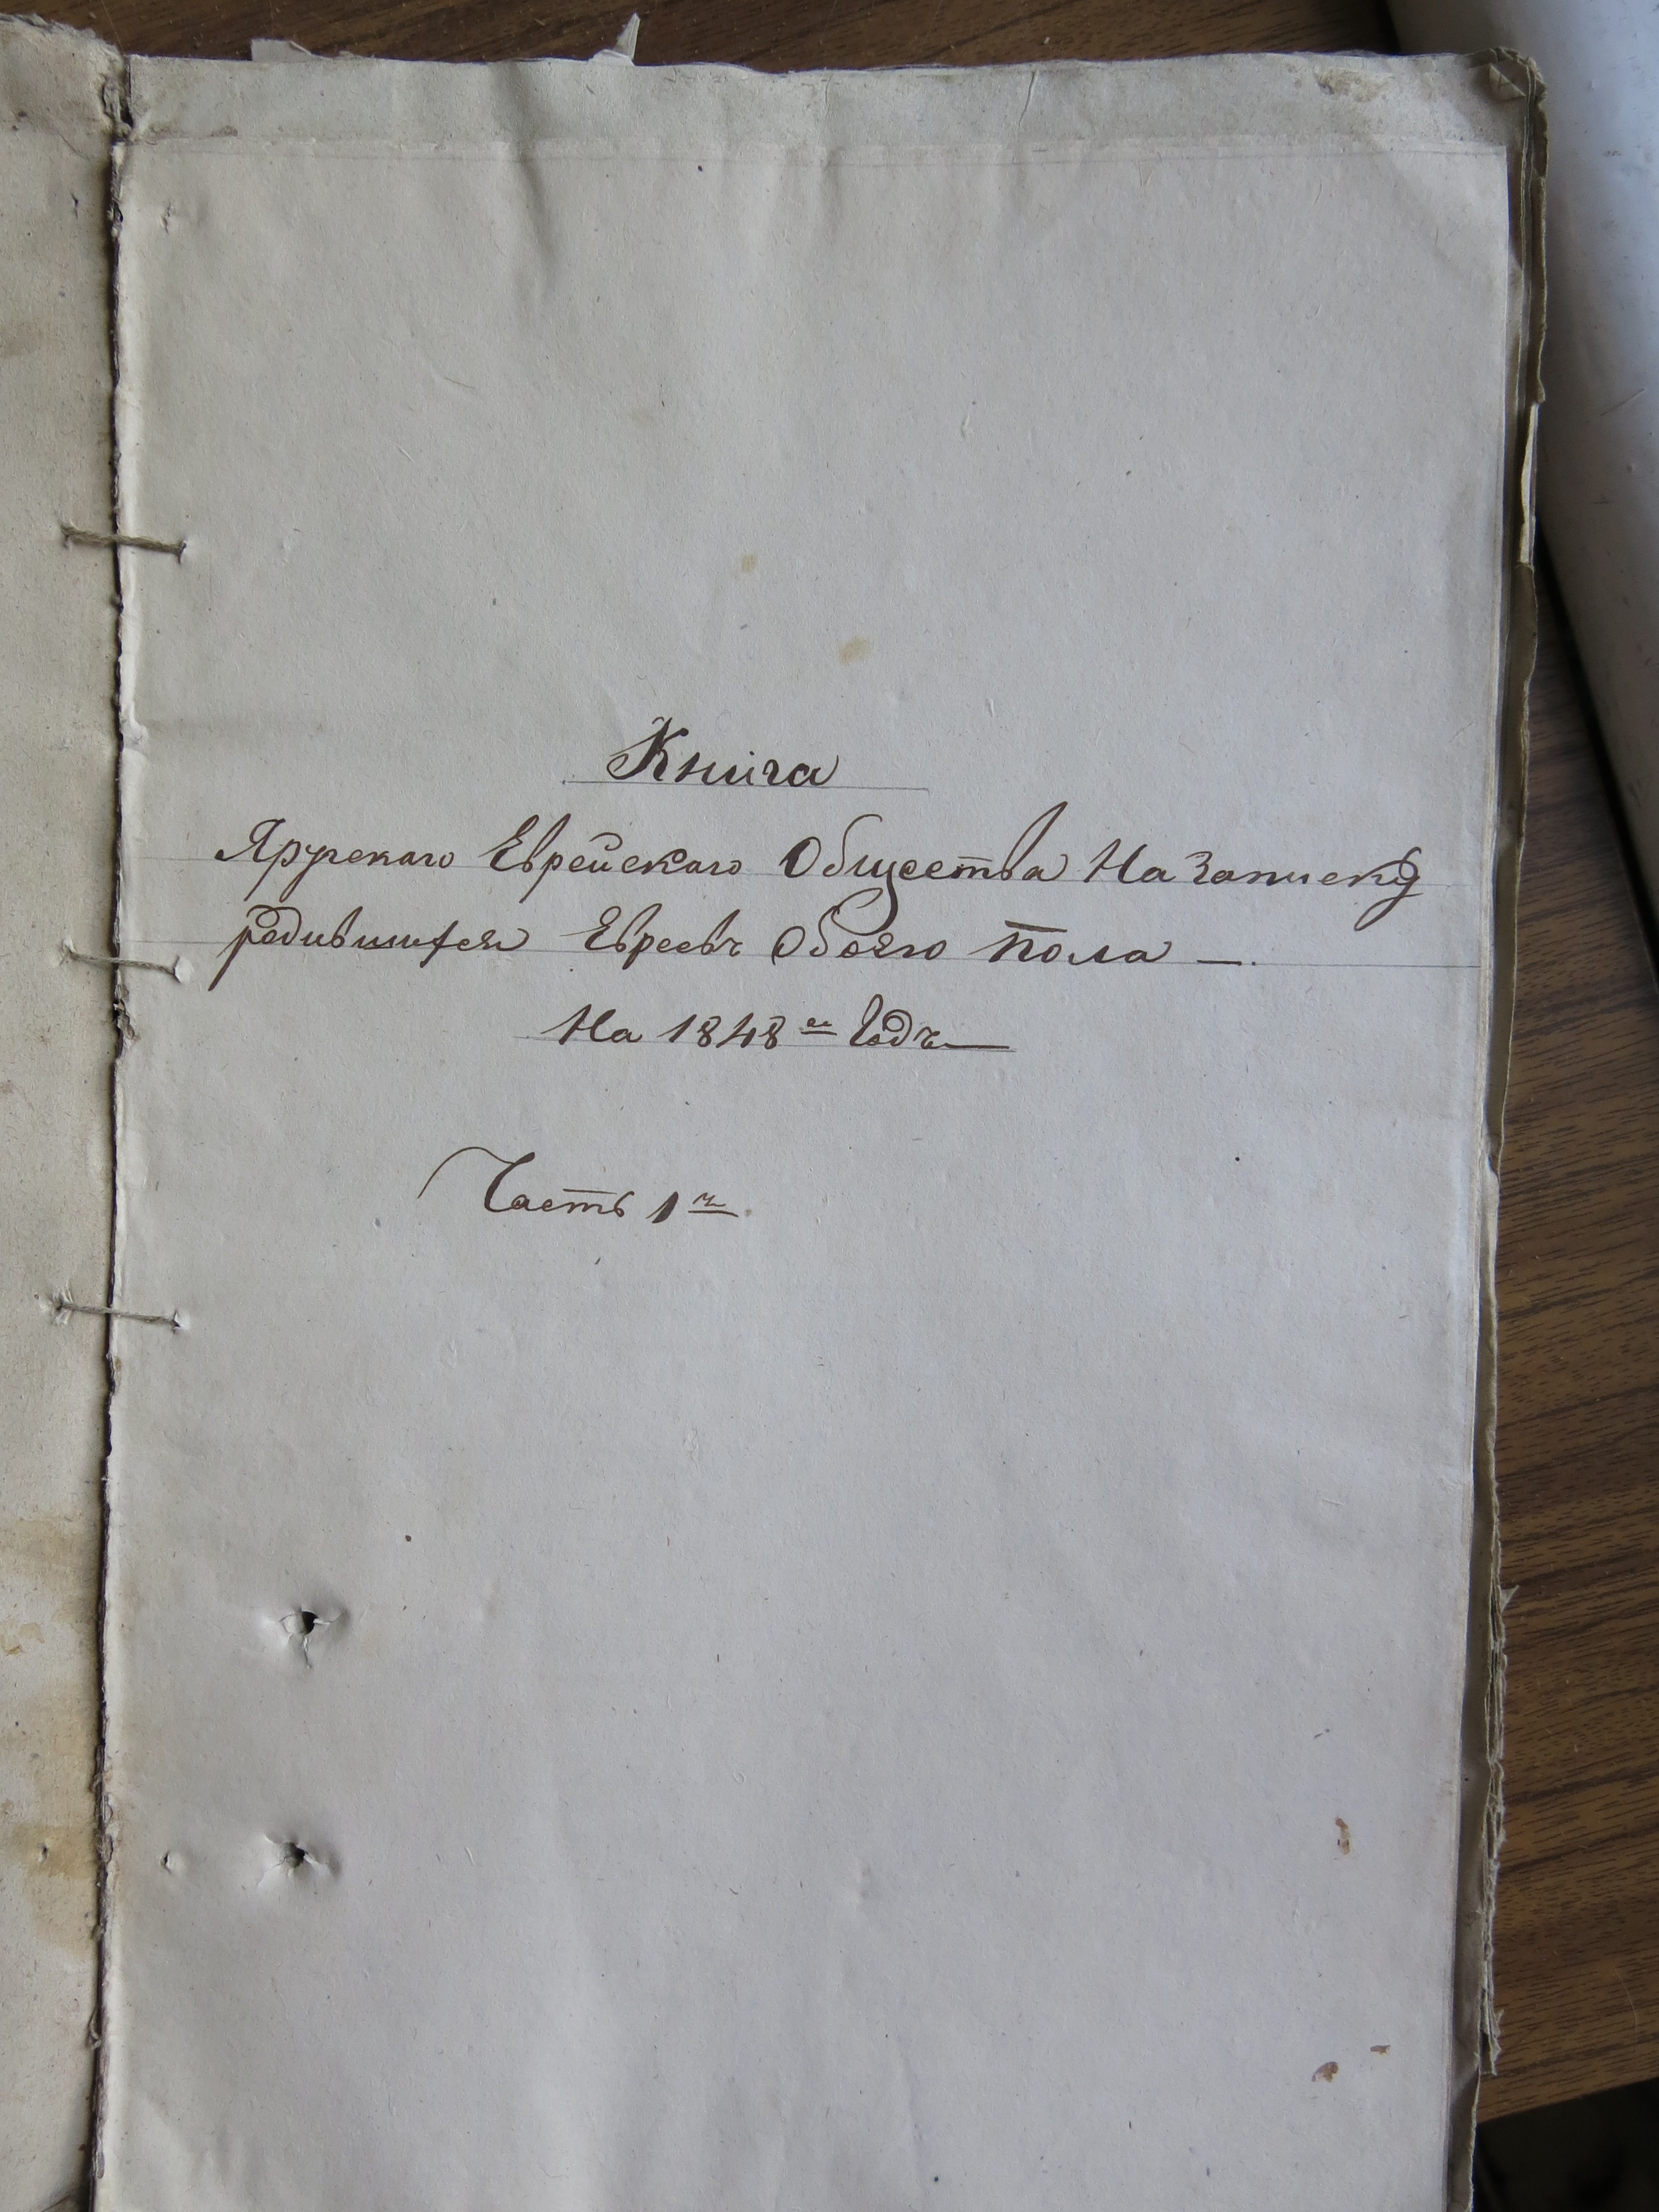 Книга
Ярускаго Еврейскаго Общества На Записку
родившихся Евреевъ Обоего пола —.
На 1848 ой Годъ—
Часть 1 я.